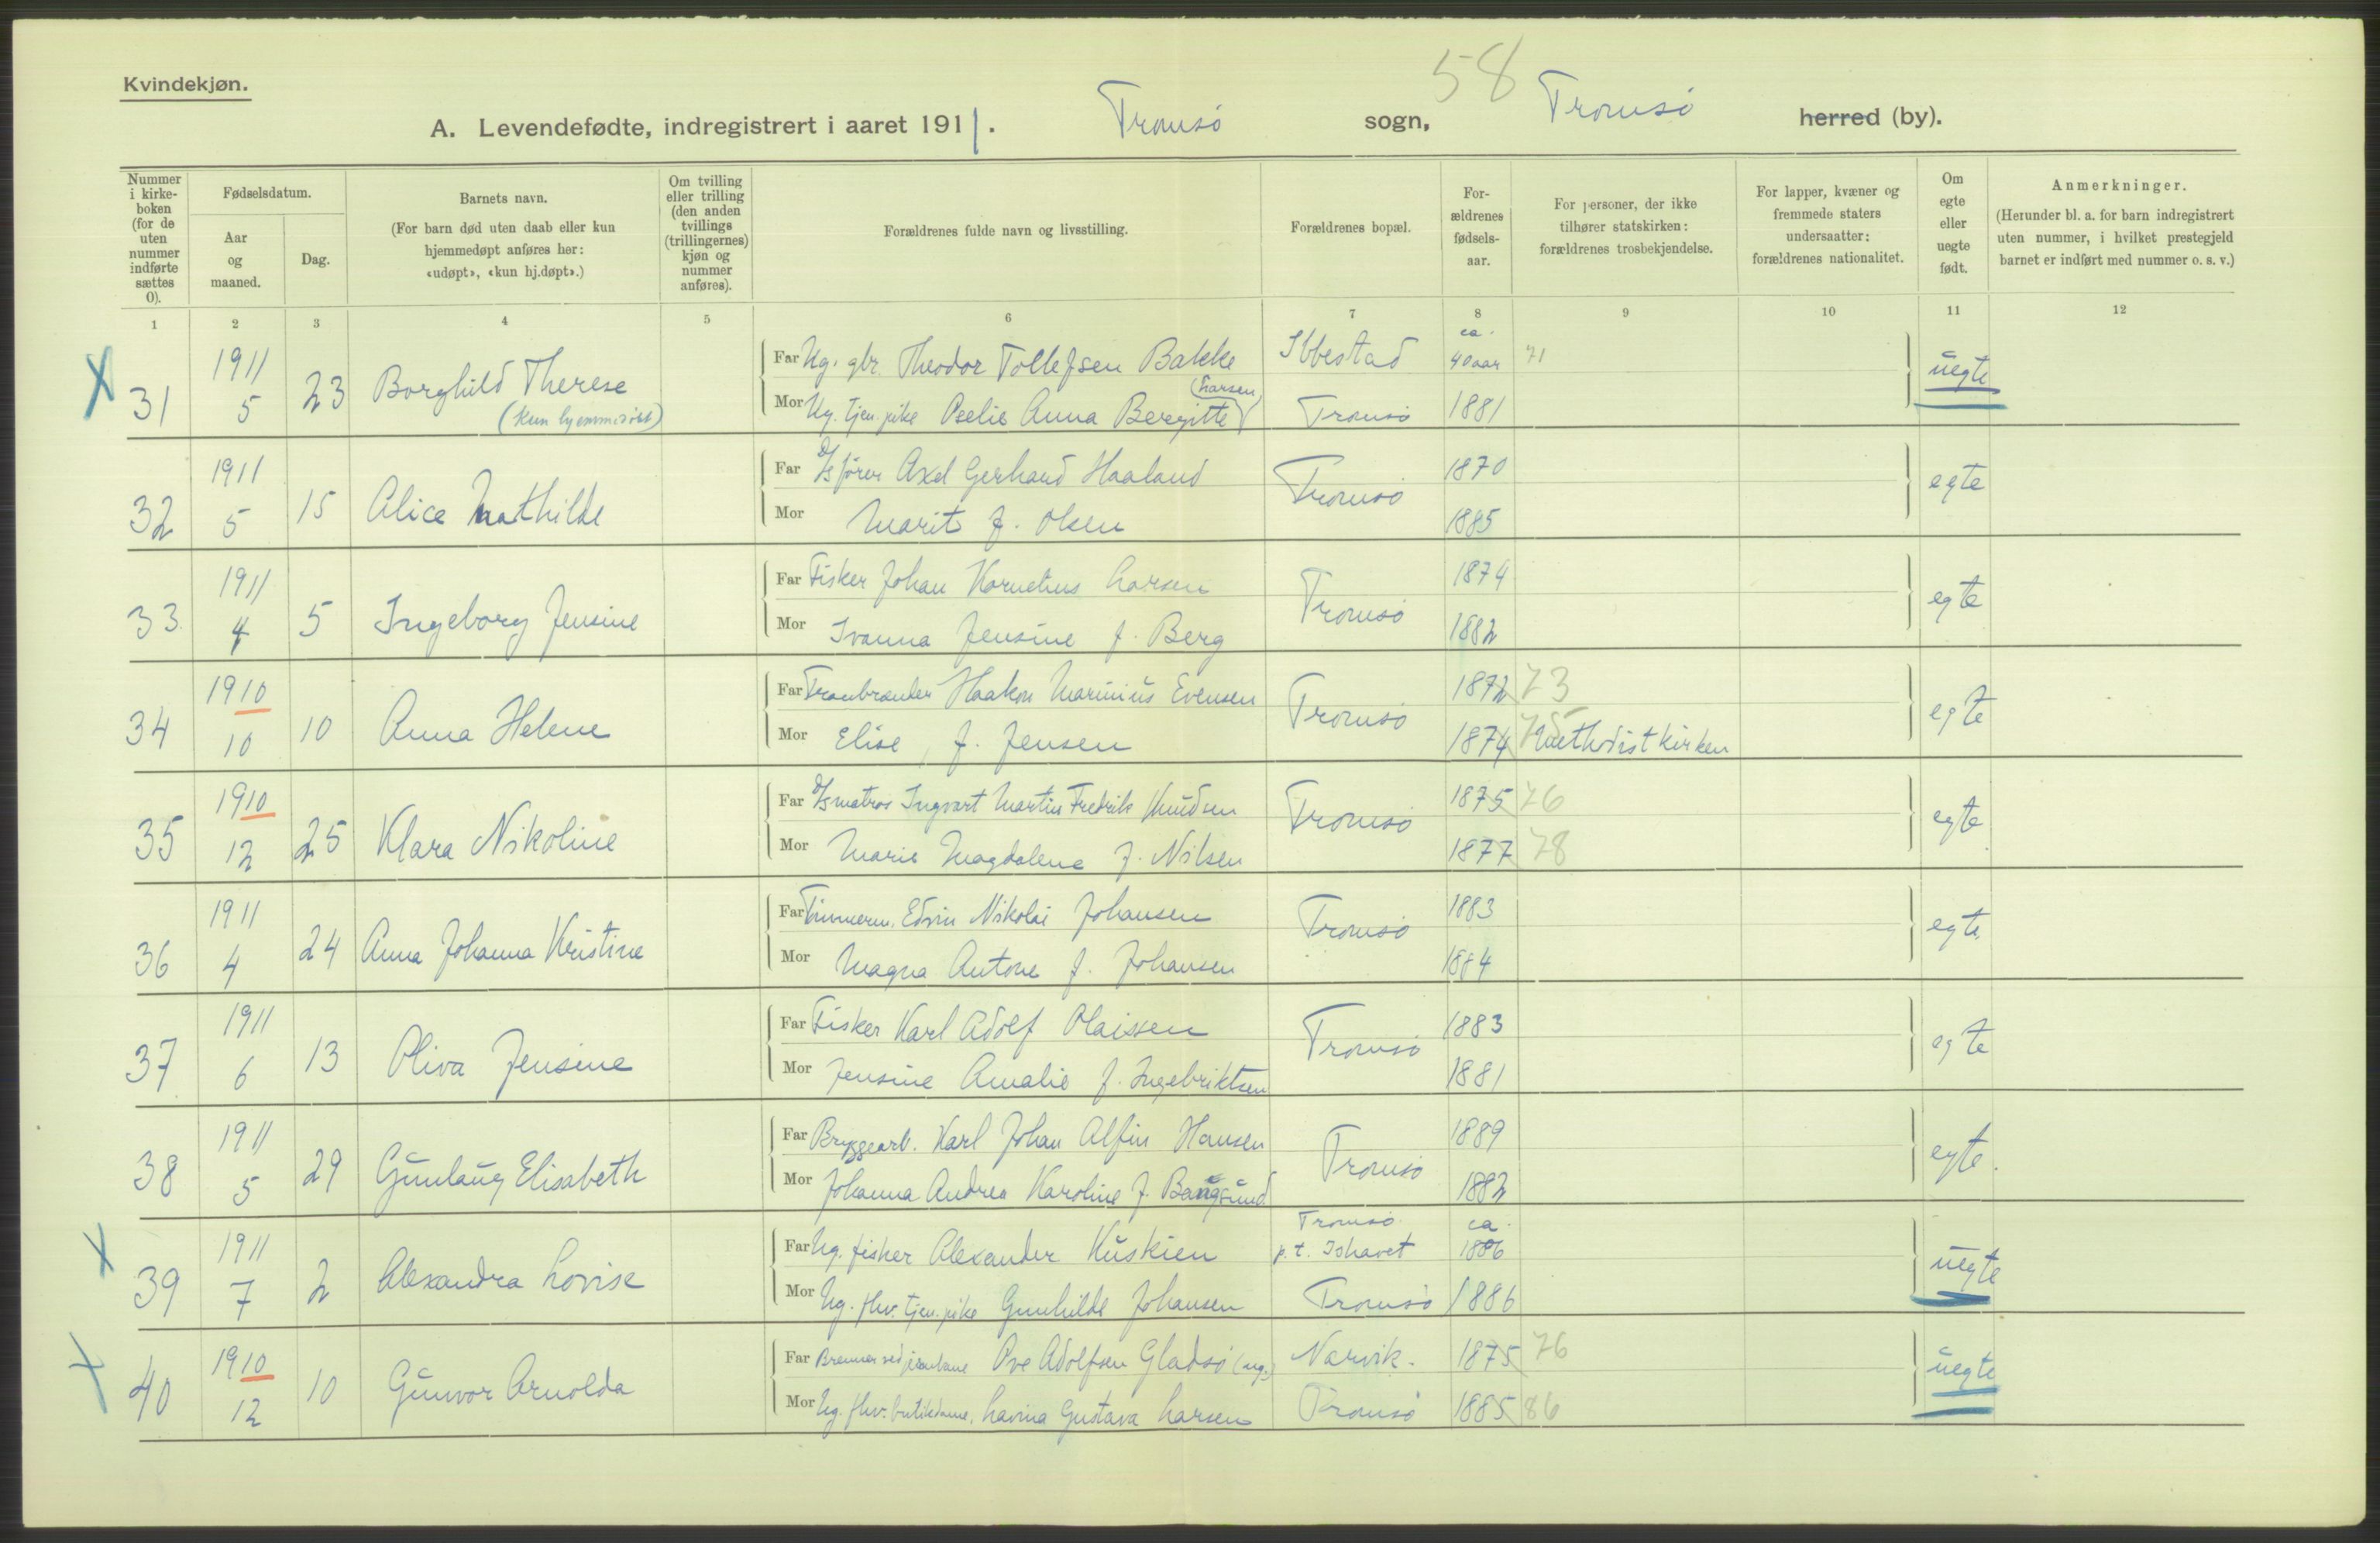 58
Kvindekjøn.
A. Levendefødte, indregistrert i aaret 1911. Tromsø sogn, Tromsø herred (by).
Nummer i kirke- boken (for de uten nummer indførte sættes 0).
Fødselsdatum.
Aar og maaned.
Dag.
Barnets navn.
(For barn død uten daab eller kun hjemmedøpt anføres her: «udøpt», «kun hj.døpt».)
Om tvilling eller trilling (den anden tvillings (trillingernes) kjøn og nummer anføres).
Forældrenes fulde navn og livsstilling.
Forældrenes bopæl.
For- ældrenes fødsels- aar.
For personer, der ikke tilhører statskirken: forældrenes trosbekjendelse.
For lapper, kvæner og fremmede staters undersaatter: forældrenes nationalitet.
Om egte eller uegte født.
Anmerkninger.
(Herunder bl. a. for barn indregistrert uten nummer, i hvilket prestegjeld barnet er indført med nummer o. s. v.)
1 2 3 4 5 6 7 8 9 10 11 12
X 31 1911 5 23 Borghild Therese (Kun hjemmedøbt)
Far Ug. gbr. Theodor Tollefsen Bakke Ibbestad ca. 40 aar 71 uegte
Mor Ug. tjen.pike Oselie Anna Bergitte (Larsen) Tromsø 1881
32 1911 5 15 Alice Mathilde
Far D/s fører Axel Gerhard Haaland Tromsø 1870 egte
Mor Marit f. Olsen 1885
33 1911 4 5 Ingeborg Jensine
Far Fisker Johan Kornelius Larsen Tromsø 1874 egte
Mor Ivanna Jensine f. Berg 1882
34 1910 10 10 Anna Helene
Far Tranbrænder Haakon Marinius Evensen Tromsø 1872 73 egte
Mor Elise, f. Jensen 1874 75 Methodistkirken
35 1910 12 25 Klara Nikoline
Far D/s matros Ingvart Martin Fredrik Knudsen Tromsø 1875 76 egte
Mor Marie Magdalene f. Nilsen 1877 78
36 1911 4 24 Anna Johanna Kristine
Far Timmerm. Edvin Nikolai Johansen Tromsø 1883 egte
Mor Magna Antone f. Johansen 1884
37 1911 6 13 Oliva Jensine
Far Fisker Karl Adolf Olaissen Tromsø 1883 egte
Mor Jensine Amalie f. Ingebriktsen 1881
38 1911 5 29 Gunlaug Elisabeth
Far Bryggearb. Karl Johan Alfin Hansen Tromsø 1889 egte.
Mor Johanna Andrea Karoline f. Bangsund 1882
X 39 1911 7 2 Alexandra Lovise
Far Ug. fisker Alexander Kuskien Tromsø p. t. Ishavet ca. 1886 uegte
Mor Ug. fhv. tjen.pike Gunhilde Johansen Tromsø 1886
X 40 1910 12 10 Gunvor Arnolda
Far Bremser ved jernbane Ove Adolfsen Gladsø (ug.) Narvik. 1875 76 uegte
Mor Ug. fhv. butikdame, Lavina Gustava Larsen Tromsø 1885 86